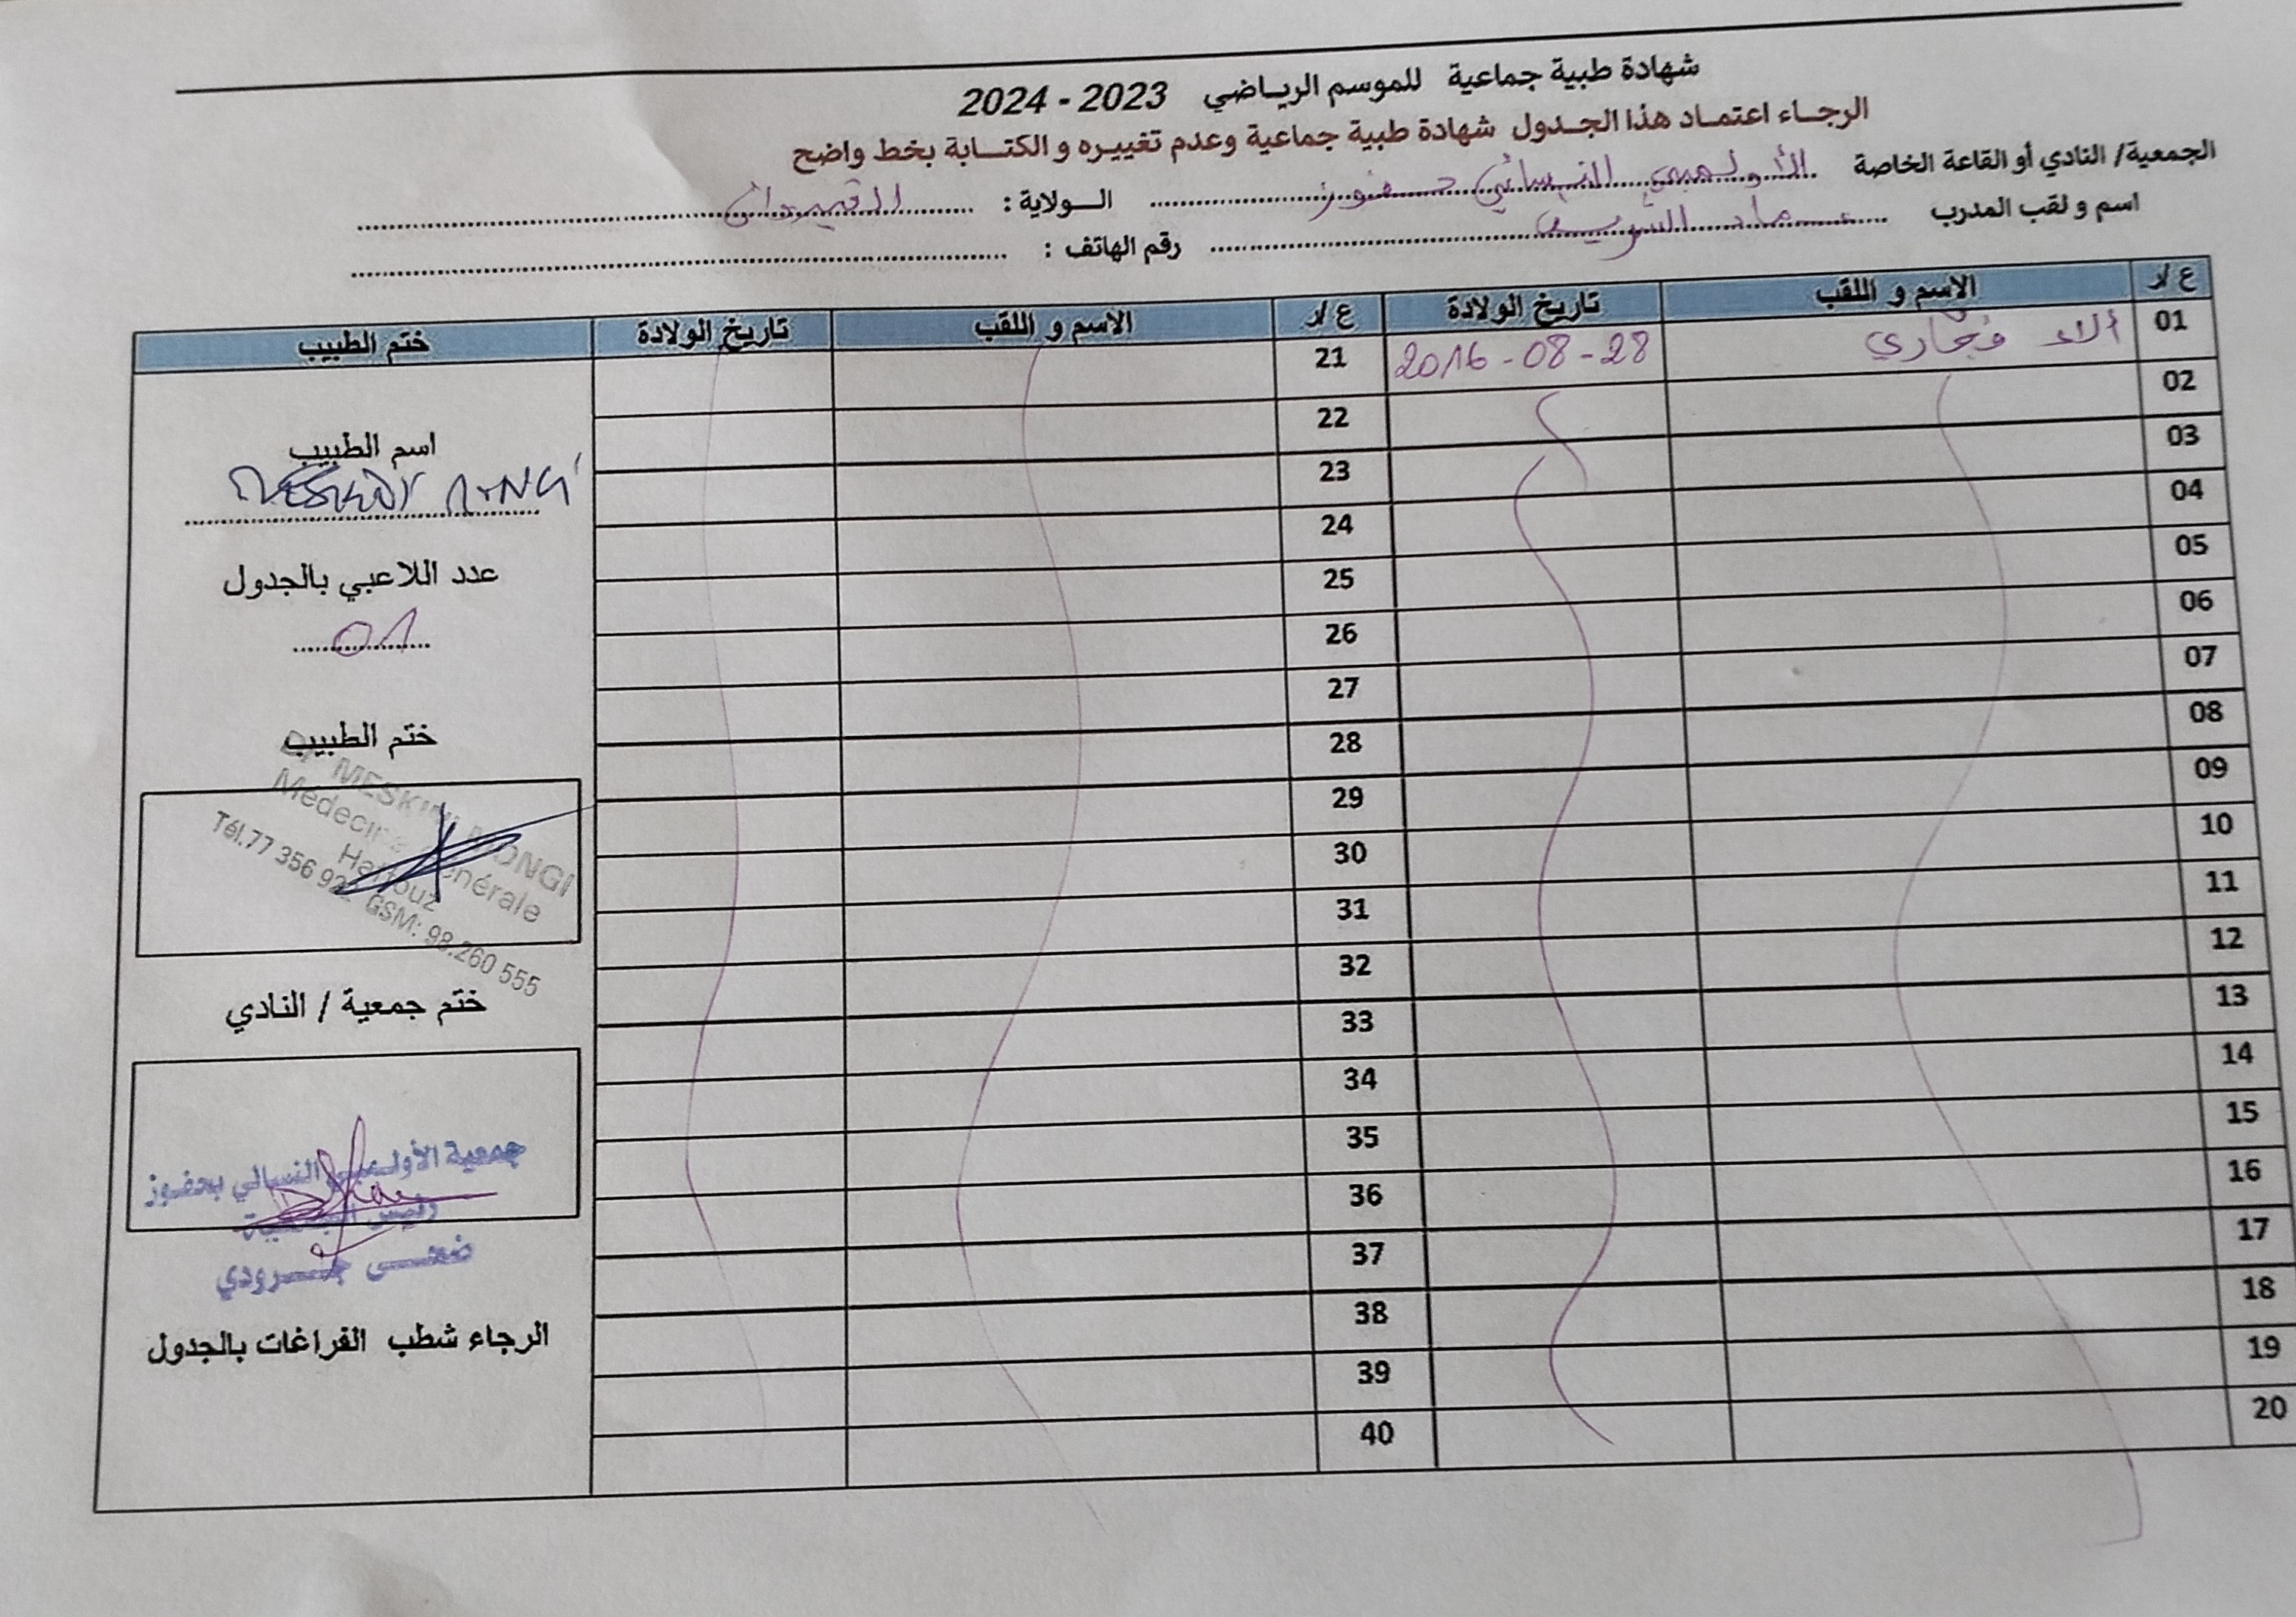 شهادة طبية جماعية للموسم الرياضي 2023 - 2024
الرجاء اعتماد هذا الجدول شهادة طبية جماعية وعدم تغييره و الكتابة بخط واضح
الجمعية/ النادي أو القاعة الخاصة الأولمبي النسائي حفوز الولاية : القيروان
اسم و لقب المدرب عماد الشريف رقم الهاتف :
ع /ر الاسم و اللقب تاريخ الولادة ع /ر الاسم و اللقب تاريخ الولادة ختم الطبيب
01 ألاء فجاري 28-08-2016 21
02 22
03 23
04 24
05 25
06 26
07 27
08 28
09 29
10 30
11 31
12 32
13 33
14 34
15 35
16 36
17 37
18 38
19 39
20 40
اسم الطبيب
MESKINI MONGI
عدد اللاعبي بالجدول
01
ختم الطبيب
Dr MESKINI MONGI
Médecine Générale
Haffouz
Tél.77 356 922 GSM: 98.260 555
ختم جمعية / النادي
جمعية الأولمبي النسائي بحفوز
رئيس الجمعية
ضحى جرودي
الرجاء شطب الفراغات بالجدول